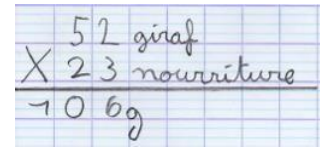 52 giraf
X 23 nourriture
106g